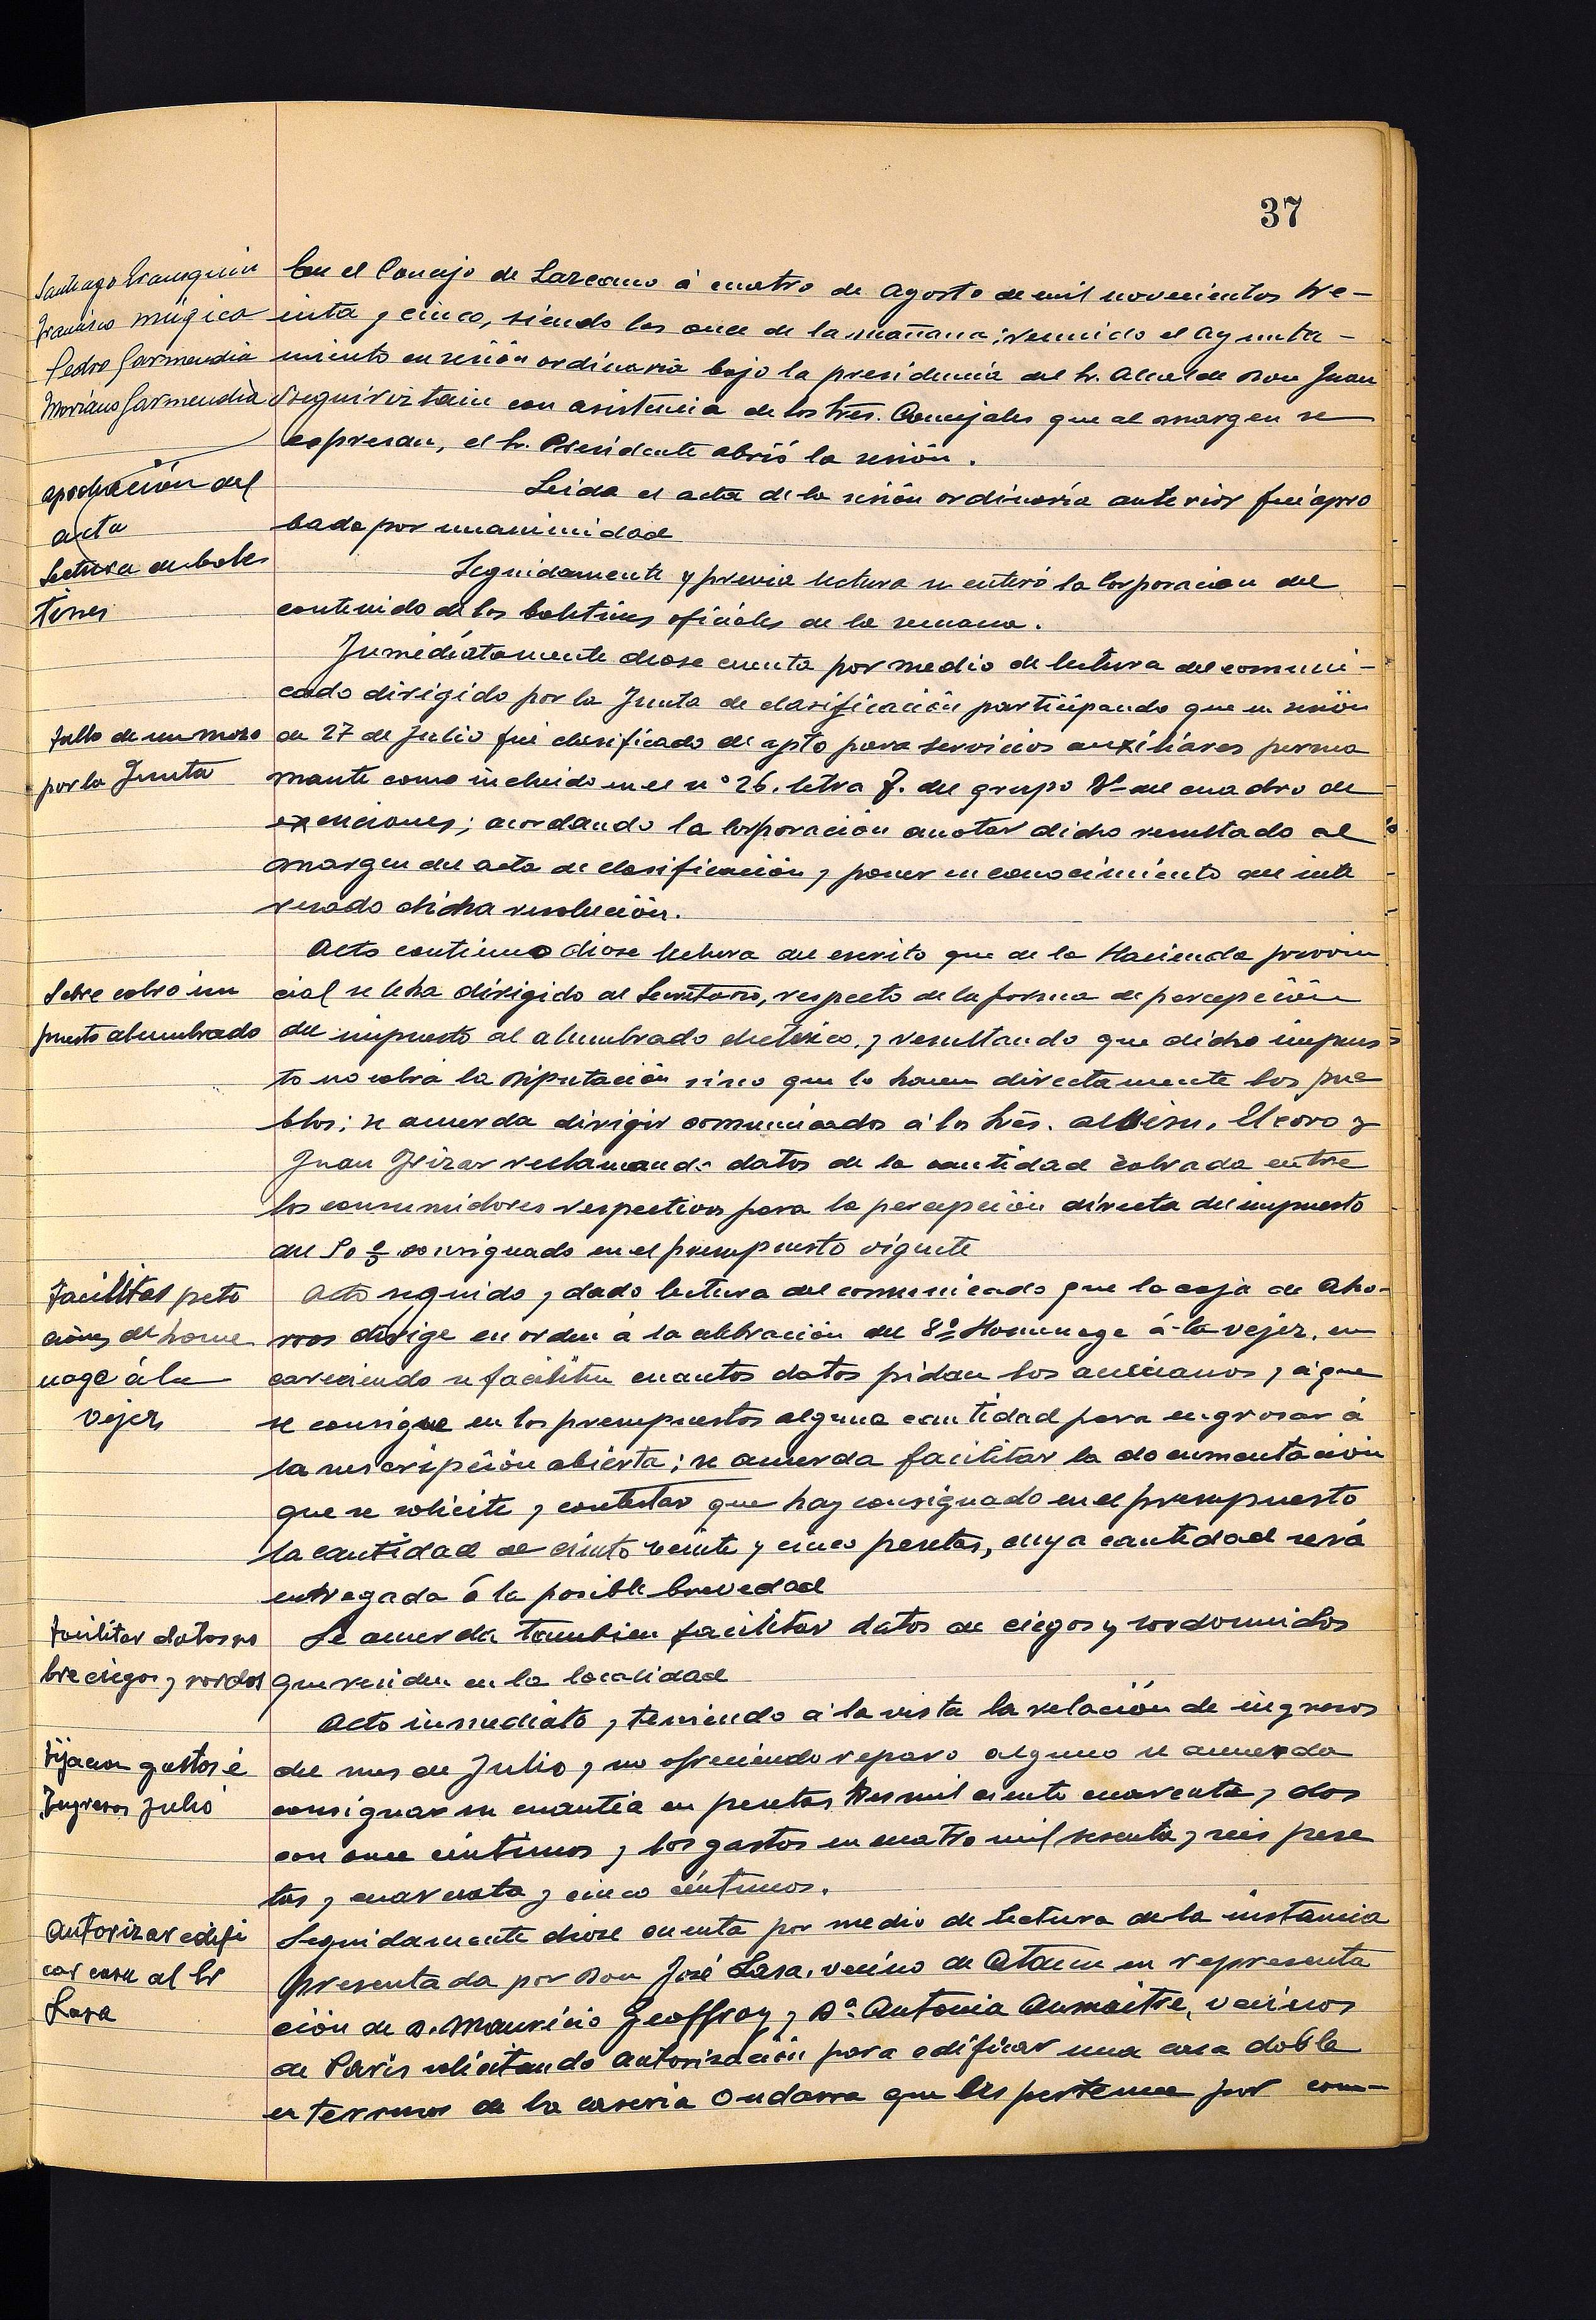 37
Santiago
Francisco Múgica
Pedro Garmendia
Mariano Garmendia
En el Concejo de Lazcano á cuatro de Agosto de mil novecientos tre-
inta y cinco, siendo las once de la mañana; reunido el Ayunta-
miento en sesión ordinaria bajo la presidencia del Sr. Alcalde Don Juan
con asistencia de los Sres. Concejales que al margen se
expresan, el Sr. Presidente abrió la sesión.
aprobación del
acta
Leida el acta de la sesión ordinaria anterior fué apro
bada por unanimidad
Lectura de bole
tines
Seguidamente y previa lectura se enteró la Corporacion del
contenido de los boletines oficiales de la semana.
Inmediatamente diose cuenta por medio de lectura del comuni-
cado dirigido por la Junta de clasificación participando que en sesión
fallo de un mozo
por la Junta
de 27 de Julio fué clasificado de apto para servicios auxiliares perma
mante como incluido en el nº 26. letra F. del grupo del cuadro de
exenciones; acordando la Corporación anotar dicho resultado al
margen del acta de clasificación y poner en conocimiento del inte
resado dicha resolución.
Acto continuo diose lectura del escrito que de la Hacienda provin
Sobre cobro im
puesto alumbrado
cial se le ha dirigido al Secretario, respecto de la forma de percepción
del impuesto al alumbrado electrico, y resultando que dicho impues-
to no cobra la Diputación sino que lo hacen directamente los pue
blos; se acuerda dirigir comunicados á los Sres. Albisu, Elcoro y
Juan Irizar reclamando datos de la cantidad cobrada entre
los consumidores respectivos para la percepción directa del impuesto
del consignado en el presupuesto vigente
Facilitar peto
ciones del home
nage á la
vejez
Acto seguido y dado lectura del comunicado que la caja de Aho-
rros dirige en orden á la celebración del 8º Homenage á la vejez, en
careciendo se faciliten cuantos datos pidan los ancianos y á que
se consigne en los presupuestos alguna cantidad para engrosar á
la suscripción abierta; se acuerda facilitar la documentación
que se solicite y contestar que hay consignado en el presupuesto
la cantidad de ciento veinte y cinco pesetas, cuya cantidad será
entregada á la posible brevedad
Facilitar datos so
bre ciegos y sordos
Se acuerda tambien facilitar datos de ciegos y sordomudos
que residen en la localidad
Acto inmediato y teniendo á la vista la relación de ingresos
Fijacion gastos é
Ingresos Julio
del mes de Julio y no ofreciendo reparo alguno se acuerda
consignar su cuantia en pesetas tres mil ciento cuarenta y dos
con once céntimos y los gastos en cuatro mil sesenta y seis pese
tas y cuarenta y cinco céntimos.
Autorizar edifi
car casa al Sr
Lasa
Seguidamente diose cuenta por medio de lectura de la instancia
presentada por Don José Lasa, vecino de Ataun en representa
ción de D. Mauricio Geoffroy y Dª. Antonia Aumaitre, vecinos
de Paris solicitando autorisación para edificar una casa doble
en terrenos de la caseria Ondarra que les pertenece por com-